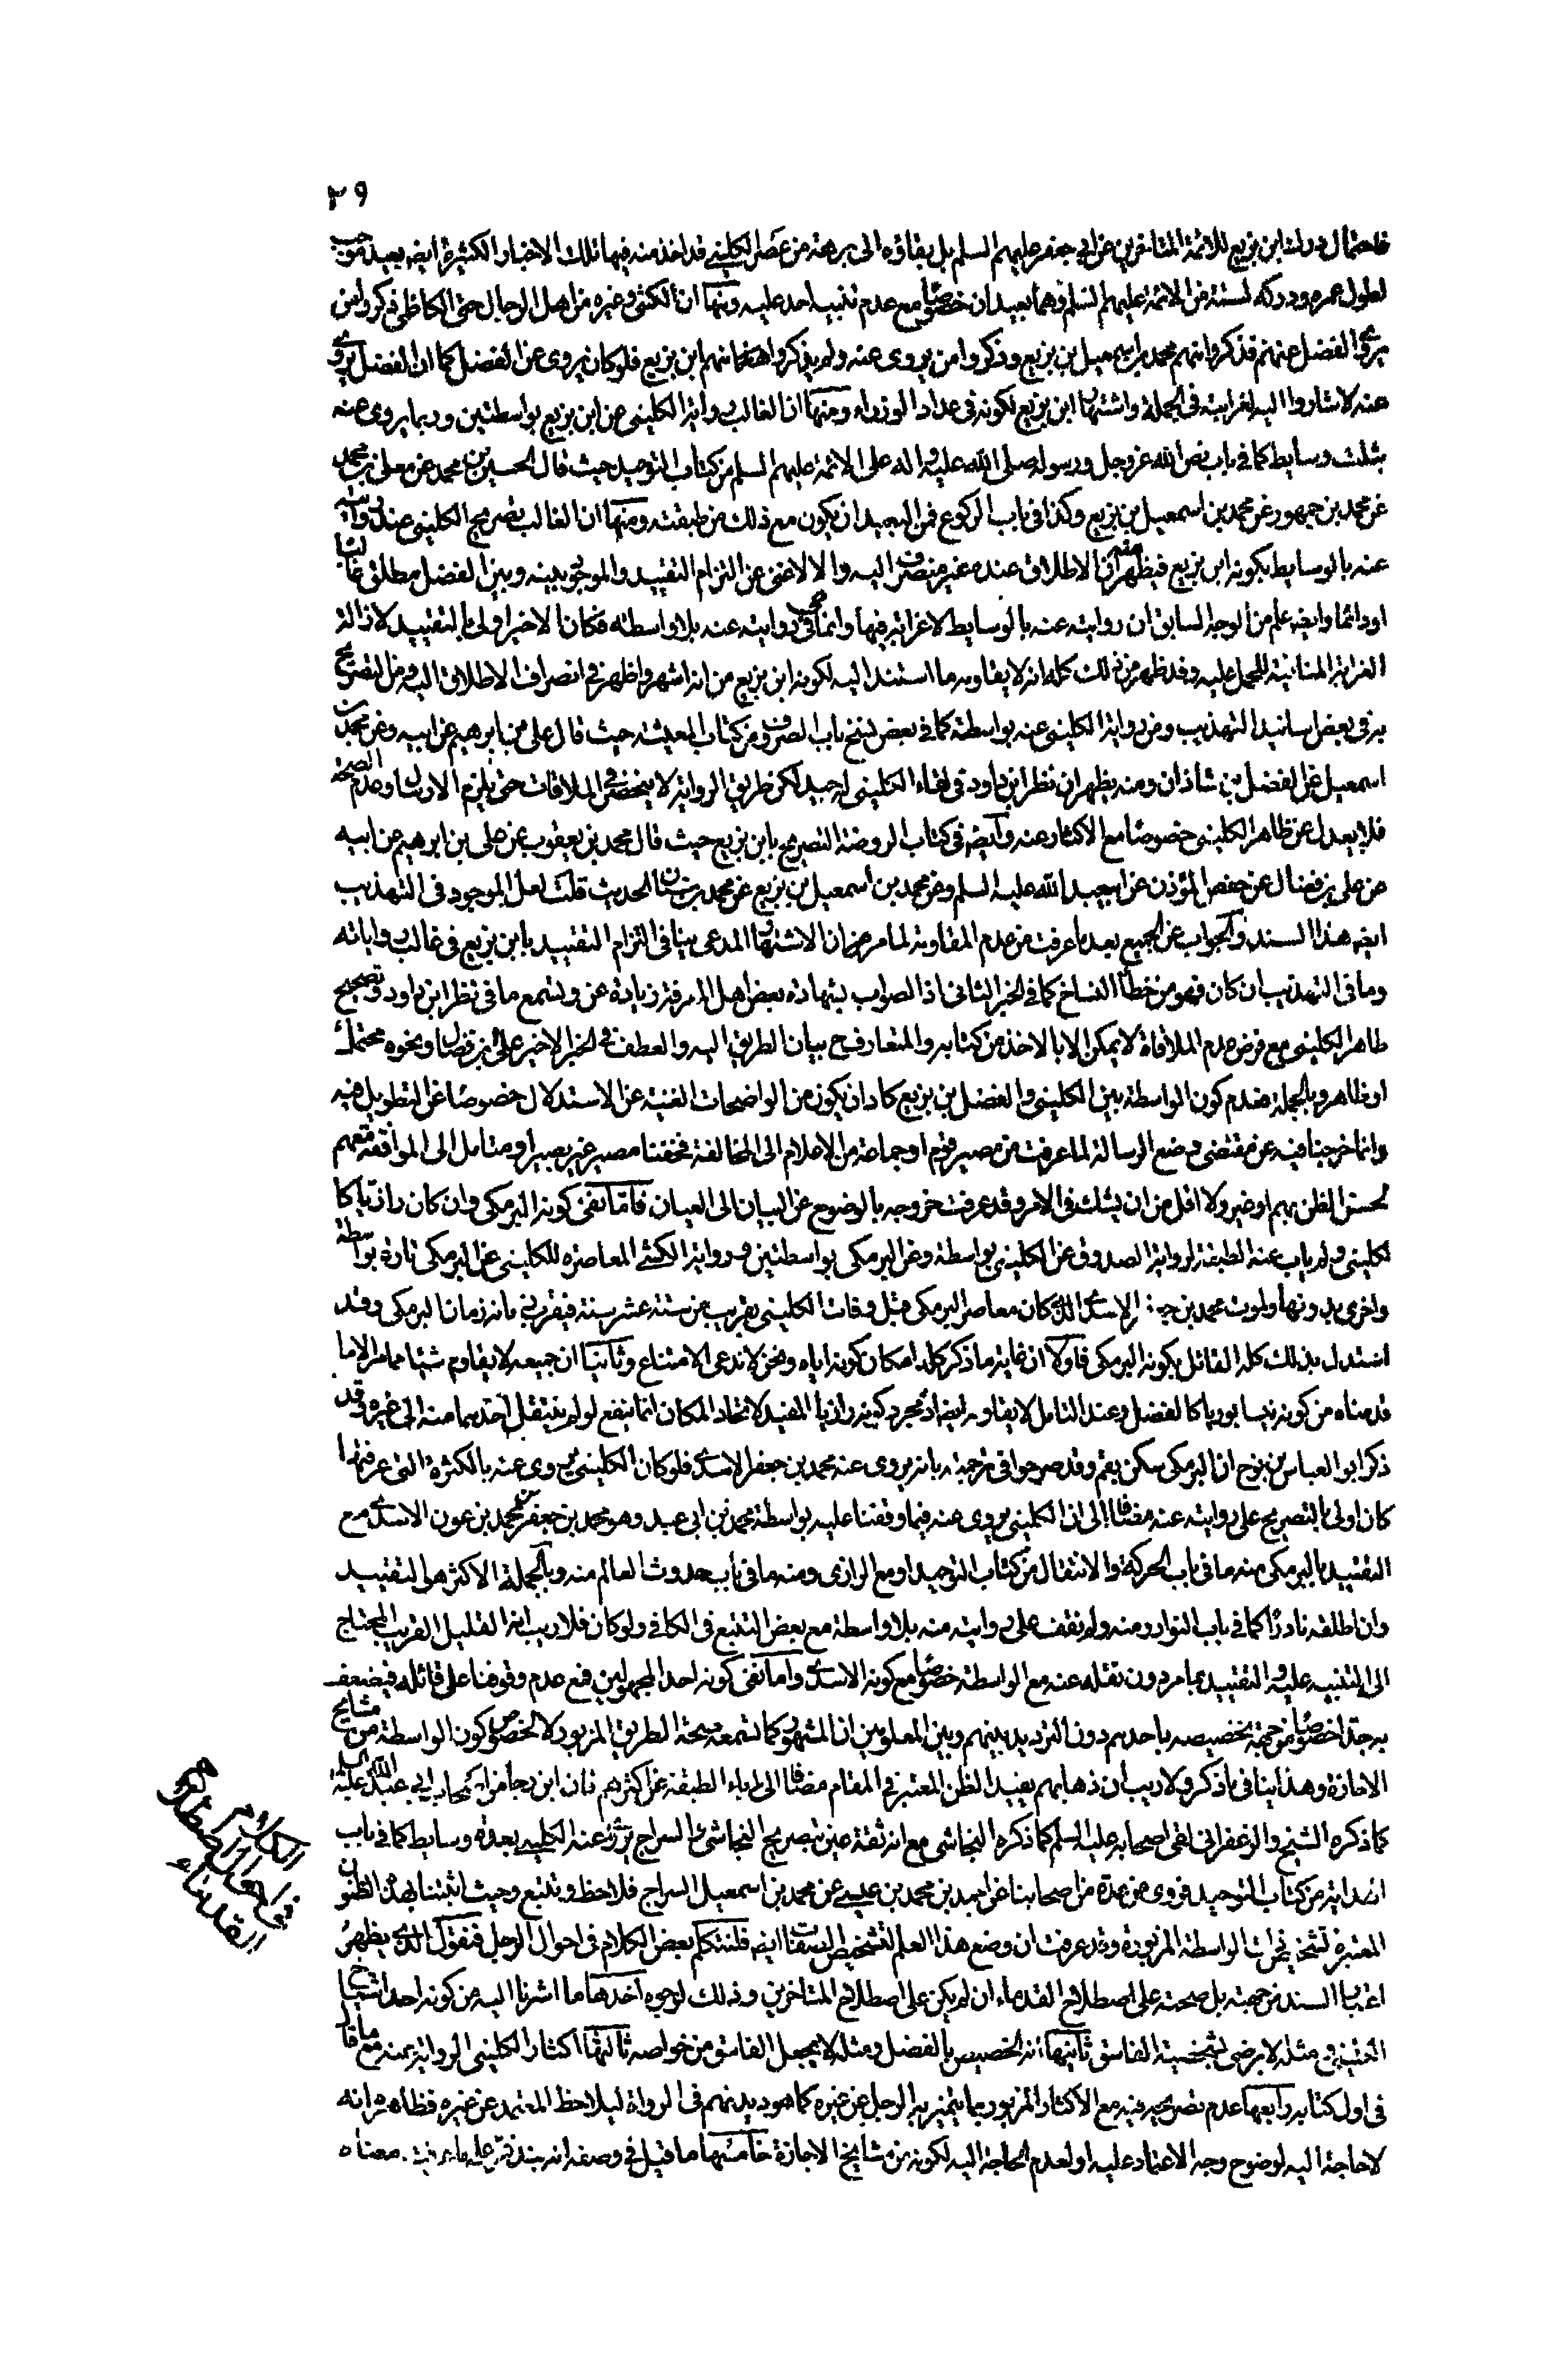 ٢٩
فاحتمال درك ابن بزيع للائمة المتاخرين عن ابي جعفر عليهم السلم بل بقاؤه الى برهة من عصر الكليني قد اخذ منه فيها تلك الاخبار الكثيرة ايضا بعيد موجب
لطول عمره ودركه لستة من الائمة عليهم السلم وهما بعيدان خصوصا مع عدم تنبيه احد عليه ومنها ان الكشي وغيره من اهل الرجال حتى الكاظمي ذكروا من
يروي الفضل عنهم فذكروا منهم محمد بن اسمعيل بن بزيع وذكروا من يروى عنه ولم يذكروا منهم ابن بزيع فلو كان يروى عن الفضل كما ان الفضل يروي
عنه لاشاروا اليه لغرابته في الجملة واشتهار ابن بزيع لكونه في عداد الوزراء ومنها ان الغالب رواية الكليني عن ابن بزيع بواسطتين وربما يروى عنه
بثلث وسايط كما في باب نص الله عز وجل ورسوله صلى الله عليه واله على الائمة عليهم السلم من كتاب التوحيد حيث قال الحسين بن محمد عن معلى بن محمد
عن محمد بن جمهور عن محمد بن اسمعيل بن بزيع وكذا في باب الركوع فمن البعيد ان يكون مع ذلك من طبقته ومنها ان الغالب تصريح الكليني عند روايته
عنه بالوسايط بكونه ابن بزيع فيظهر منه ان الاطلاق عنده غير منصرف اليه والا لاغنى عن التزام التقييد والموجود بينه وبين الفضل مطلق غالبا
او دائما وايضا علم من الوجه السابق ان روايته عنه بالوسايط لا غرابة فيها وانما هي في روايته عنه بلا واسطة فكان الاخير اولى بالتقييد لازالة
الغرابة المنافية للحمل عليه وقد ظهر من ذلك كله انه لا يقاومه ما استند اليه لكونه ابن بزيع من انه اشهر واظهر في انصراف الاطلاق اليه ومن التصريح
به في بعض اسانيد التهذيب ومن رواية الكليني عنه بواسطة كما في بعض نسخ باب الصروف من كتاب المعيشة حيث قال علي بن ابرهيم عن ابيه وعن محمد بن
اسمعيل عن الفضل بن شاذان ومنه يظهر ان نظر ابن داود في لقاء الكليني له جيد لكن طريق الرواية لا ينحصر في الملاقات حتى يلزم الارسال وعدم الصحة
فلا يعدل عن ظاهر الكليني خصوصا مع الاكثار عنه وايضا في كتاب الروضة التصريح بابن بزيع حيث قال محمد بن يعقوب عن علي بن ابرهيم عن ابيه
عن علي بن فضال عن حفص المؤذن عن ابيعبد الله عليه السلم وعن محمد بن اسمعيل بن بزيع عن محمد بن سنان الحديث قلت لعل الموجود في التهذيب
ايضا هذا السند والجواب عن الجميع بعد ما عرفت من عدم المقاومة لما مر ان الاشتهار المدعى ينافي التزام التقييد بابن بزيع في غالب رواياته
وما في التهذيب ان كان فهو من خطأ النساخ كما في الخبر الثاني اذ الصواب بشهادة بعض اهل المعرفة زيادة عن وتسمع ما في نظر ابن داود وتصحيح
ظاهر الكليني مع فرض عدم الملاقاة لا يمكن الا بالاخذ من كتابه والمتعارف ح بيان الطريق اليه والعطف في الخبر الاخير على ابن فضال ونحوه محتمل
او ظاهر وبالجملة فعدم كون الواسطة بين الكليني والفضل بن بزيع كاد ان يكون من الواضحات الغنية عن الاستدلال خصوصا عن التطويل فيه
وانما خرجنا فيه عن مقتضى وضع الرسالة لما عرفت من مصير قوم او جماعة من الاعلام الى المخالفة فخفنا مصير غير بصير او متامل الى الموافقة معهم
لحسن الظن بهم او غيره ولا اقل من ان يشك في الامر وقد عرفت خروجه بالوضوح عن البيان الى العيان فاما نفي كونه البرمكي وان كان رازيا كا
لكليني ولم ياب عنه الطبقة لرواية الصدوق عن الكليني بواسطة وعن البرمكي بواسطتين ورواية الكشي المعاصر للكليني عن البرمكي تارة بواسطة
واخرى بدونها ولموت محمد بن جعفر الاسدي الذي كان معاصر البرمكي قبل وفات الكليني بقريب من ستة عشر سنة فيقرب زمانه زمان البرمكي وقد
استدل بذلك كله القائل بكونه البرمكي فاولا ان غاية ما ذكر كله امكان كونه اياه ونحن لا ندعي الامتناع وثانيا ان جميعه لا يقاوم شيئا مما مر الا ما
قدمناه من كونه نيسابوريا كالفضل وعند التامل لا يقاومه ايضا اذ مجرد كونه رازيا المفيد لاتحاد المكان انما ينفع لو لم ينتقل احدهما منه الى غيره وقد
ذكر ابو العباس بن نوح ان البرمكي سكن بقم وقد صرحوا في ترجمته بانه يروى عنه محمد بن جعفر الاسدي فلو كان الكليني يروى عنه بالكثرة التي عرفتها
كان اولى بالتصريح على روايته عنه مضافا الى ان الكليني يروي عنه فيما وقفنا عليه بواسطة محمد بن ابي عبد وهو محمد بن جعفر بن محمد بن عون الاسدي مع
التقييد بالبرمكي منه ما في باب الحركة والانتقال من كتاب التوحيد او مع الرازي ومنه ما في باب حدوث العالم منه وبالجملة الاكثر هو التقييد
وان اطلقه نادرا كما في باب النوادر ومنه ولم نقف على روايته منه بلا واسطة مع بعض التتبع في الكافي ولو كان فلا ريب انه القليل الغريب المحتاج
الى التنبيه عليه والتقييد بما مر دون نقله عنه مع الواسطة خصوصا مع كونه الاسدي واما نفي كونه احد المجهولين فمع عدم وقوفنا على قائله فيضعف
به جدا خصوصا من جهة تخصيصه باحدهم دون الترديد بينهم وبين المعلومين ان المشهور كما تسمعه صحة الطريق المزبور لا لخصوص كون الواسطة من مشايخ
الاجازة وهذا ينافي ما ذكر ولا ريب ان ذهابهم يفيد الظن المعتبر في المقام مضافا الى اباء الطبقة عن اكثرهم فان ابن رجا من اصحاب ابي عبد الله عليه السلم
كما ذكره الشيخ والزعفراني لقي اصحابه عليه السلم كما ذكره النجاشي مع انه ثقة عين بتصريح النجاشي والسراج يروي عنه الكليني بعدة وسايط كما في باب
من كتاب التوحيد فروى عن عدة من اصحابنا عن احمد بن محمد بن عيسى عن محمد بن اسمعيل السراج فلاحظ وتتبع وحيث اثبتنا بهذه الظنون
المعتبرة تشخيص ذات الواسطة المزبورة وقد عرفت ان وضع هذا العلم لتشخيص الصفات ايضا فلنتكلم بعض الكلام في احوال الرجل فنقول الذي يظهر
اعتبار السند من جهته بل صحته على اصطلاح القدماء ان لم يكن على اصطلاح المتاخرين وذلك لوجوه احدها ما اشرنا اليه من كونه احد اشياخ
الكشي ومثله لا يرضى بشيخية الفاسق ثانيها انه الخصيص بالفضل ومثله لا يجعل الفاسق من خواصه ثالثها اكثار الكليني الرواية عنه مع ما قال
في اول كتابه رابعها عدم تصريحه فيه مع الاكثار المزبور بما يتميز به الرجل عن غيره كما هو ديدنهم في الرواة ليلاحظ المعتمد عن غيره فظاهره انه
لا حاجة اليه لوضوح وجه الاعتماد عليه او لعدم الحاجة اليه لكونه من مشايخ الاجازة خامسها ما قيل في وصفه انه بندفر معناه
الكلام
في معاني اصطلاح
القدماء